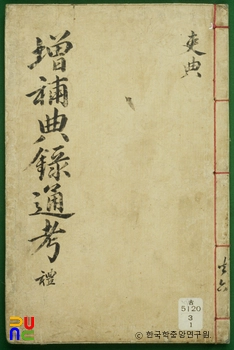 吏典
增補典錄通考
禮
共六
古
5120
3
1
ⓒ 한국학중앙연구원